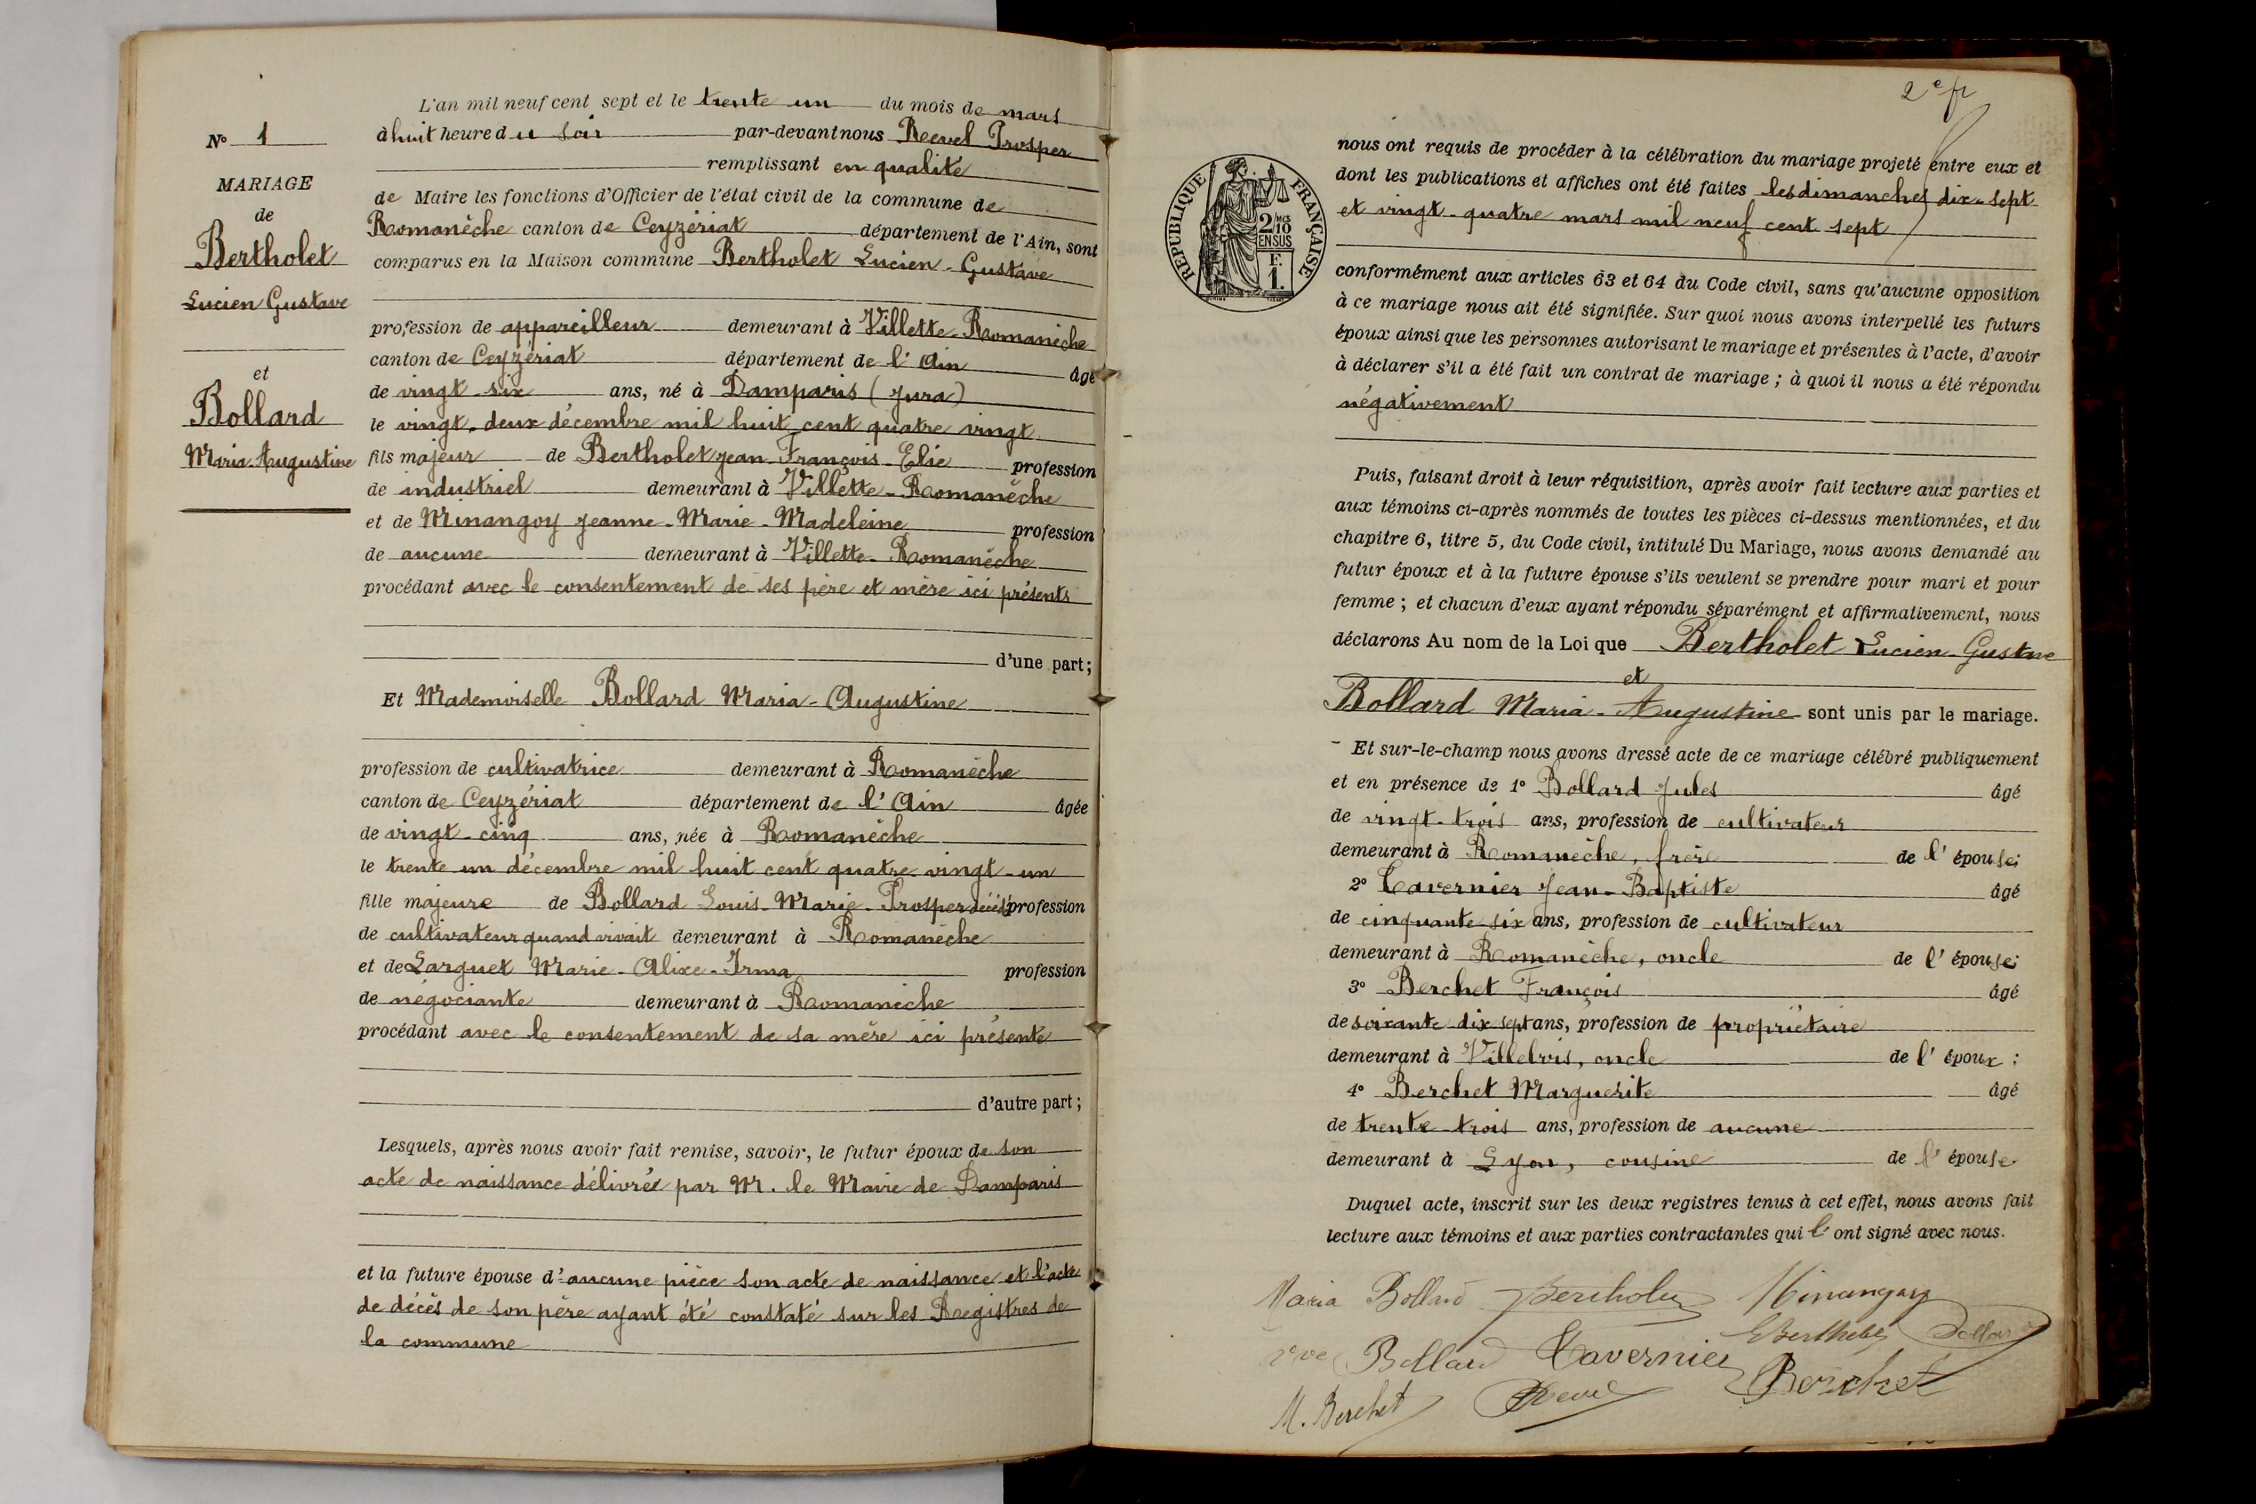 L'an mil neuf cent sept et le trente un du mois de mars
à huit heure du soir par-devant nous Revel Prosper
remplissant en qualité
de Maire les fonctions d'Officier de l'état civil de la commune de
Romanèche canton de Ceyzériat département de l'Ain, sont
comparus en la Maison commune Bertholet Lucien-Gustave
profession de appareilleur demeurant à Villette-Romanèche
canton de Ceyzériat département de l'Ain âgé
de vingt six ans, né à Damparis (Jura)
le vingt-deux décembre mil huit cent quatre vingt
fils majeur de Bertholet Jean-François-Elie profession
de industriel demeurant à Villette-Romanèche
et de Minangoy Jeanne-Marie-Madeleine profession
de aucune demeurant à Villette-Romanèche
procédant avec le consentement de ses père et mère ici présents
d'une part;
Et Mademoiselle Bollard Maria-Augustine
profession de cultivatrice demeurant à Romanèche
canton de Ceyzériat département de l'Ain âgée
de vingt-cinq ans, née à Romanèche
le trente un décembre mil huit cent quatre vingt-un
fille majeure de Bollard Louis-Marie-Prosper décédé profession
de cultivateur quand vivait demeurant à Romanèche
et de Larguet Marie-Alixe-Irma profession
de négociante demeurant à Romanèche
procédant avec le consentement de sa mère ici présente
d'autre part;
Lesquels, après nous avoir fait remise, savoir, le futur époux de son
acte de naissance délivré par M. le Maire de Damparis
et la future épouse d'aucune pièce son acte de naissance et l'acte
de décès de son père ayant été constaté sur les Registres de
la commune
N° 1
MARIAGE
de
Bertholet
Lucien Gustave
et
Bollard
Maria-Augustine
2e fr
RÉPUBLIQUE FRANÇAISE
2/10 EN SUS
F.
1.
nous ont requis de procéder à la célébration du mariage projeté entre eux et
dont les publications et affiches ont été faites les dimanches dix-sept
et vingt-quatre mars mil neuf cent sept
conformément aux articles 63 et 64 du Code civil, sans qu'aucune opposition
à ce mariage nous ait été signifiée. Sur quoi nous avons interpellé les futurs
époux ainsi que les personnes autorisant le mariage et présentes à l'acte, d'avoir
à déclarer s'il a été fait un contrat de mariage ; à quoi il nous a été répondu
négativement
Puis, faisant droit à leur réquisition, après avoir fait lecture aux parties et
aux témoins ci-après nommés de toutes les pièces ci-dessus mentionnées, et du
chapitre 6, titre 5, du Code civil, intitulé Du Mariage, nous avons demandé au
futur époux et à la future épouse s'ils veulent se prendre pour mari et pour
femme ; et chacun d'eux ayant répondu séparément et affirmativement, nous
déclarons Au nom de la Loi que Bertholet Lucien-Gustave
et
Bollard Maria-Augustine sont unis par le mariage.
Et sur-le-champ nous avons dressé acte de ce mariage célébré publiquement
et en présence de 1° Bollard Jules âgé
de vingt-trois ans, profession de cultivateur
demeurant à Romanèche, frère de l'épouse;
2° Tavernier Jean-Baptiste âgé
de cinquante six ans, profession de cultivateur
demeurant à Romanèche, oncle de l'épouse;
3° Berchet François âgé
de soixante dix sept ans, profession de propriétaire
demeurant à Villebois, oncle de l'époux :
4° Berchet Marguerite âgé
de trente trois ans, profession de aucune
demeurant à Lyon, cousine de l'épouse
Duquel acte, inscrit sur les deux registres tenus à cet effet, nous avons fait
lecture aux témoins et aux parties contractantes qui l'ont signé avec nous.
Maria Bollard Bertholet Minangoy
Bertholet Bollard
Vve Bollard Tavernier Berchet
M. Berchet Revel